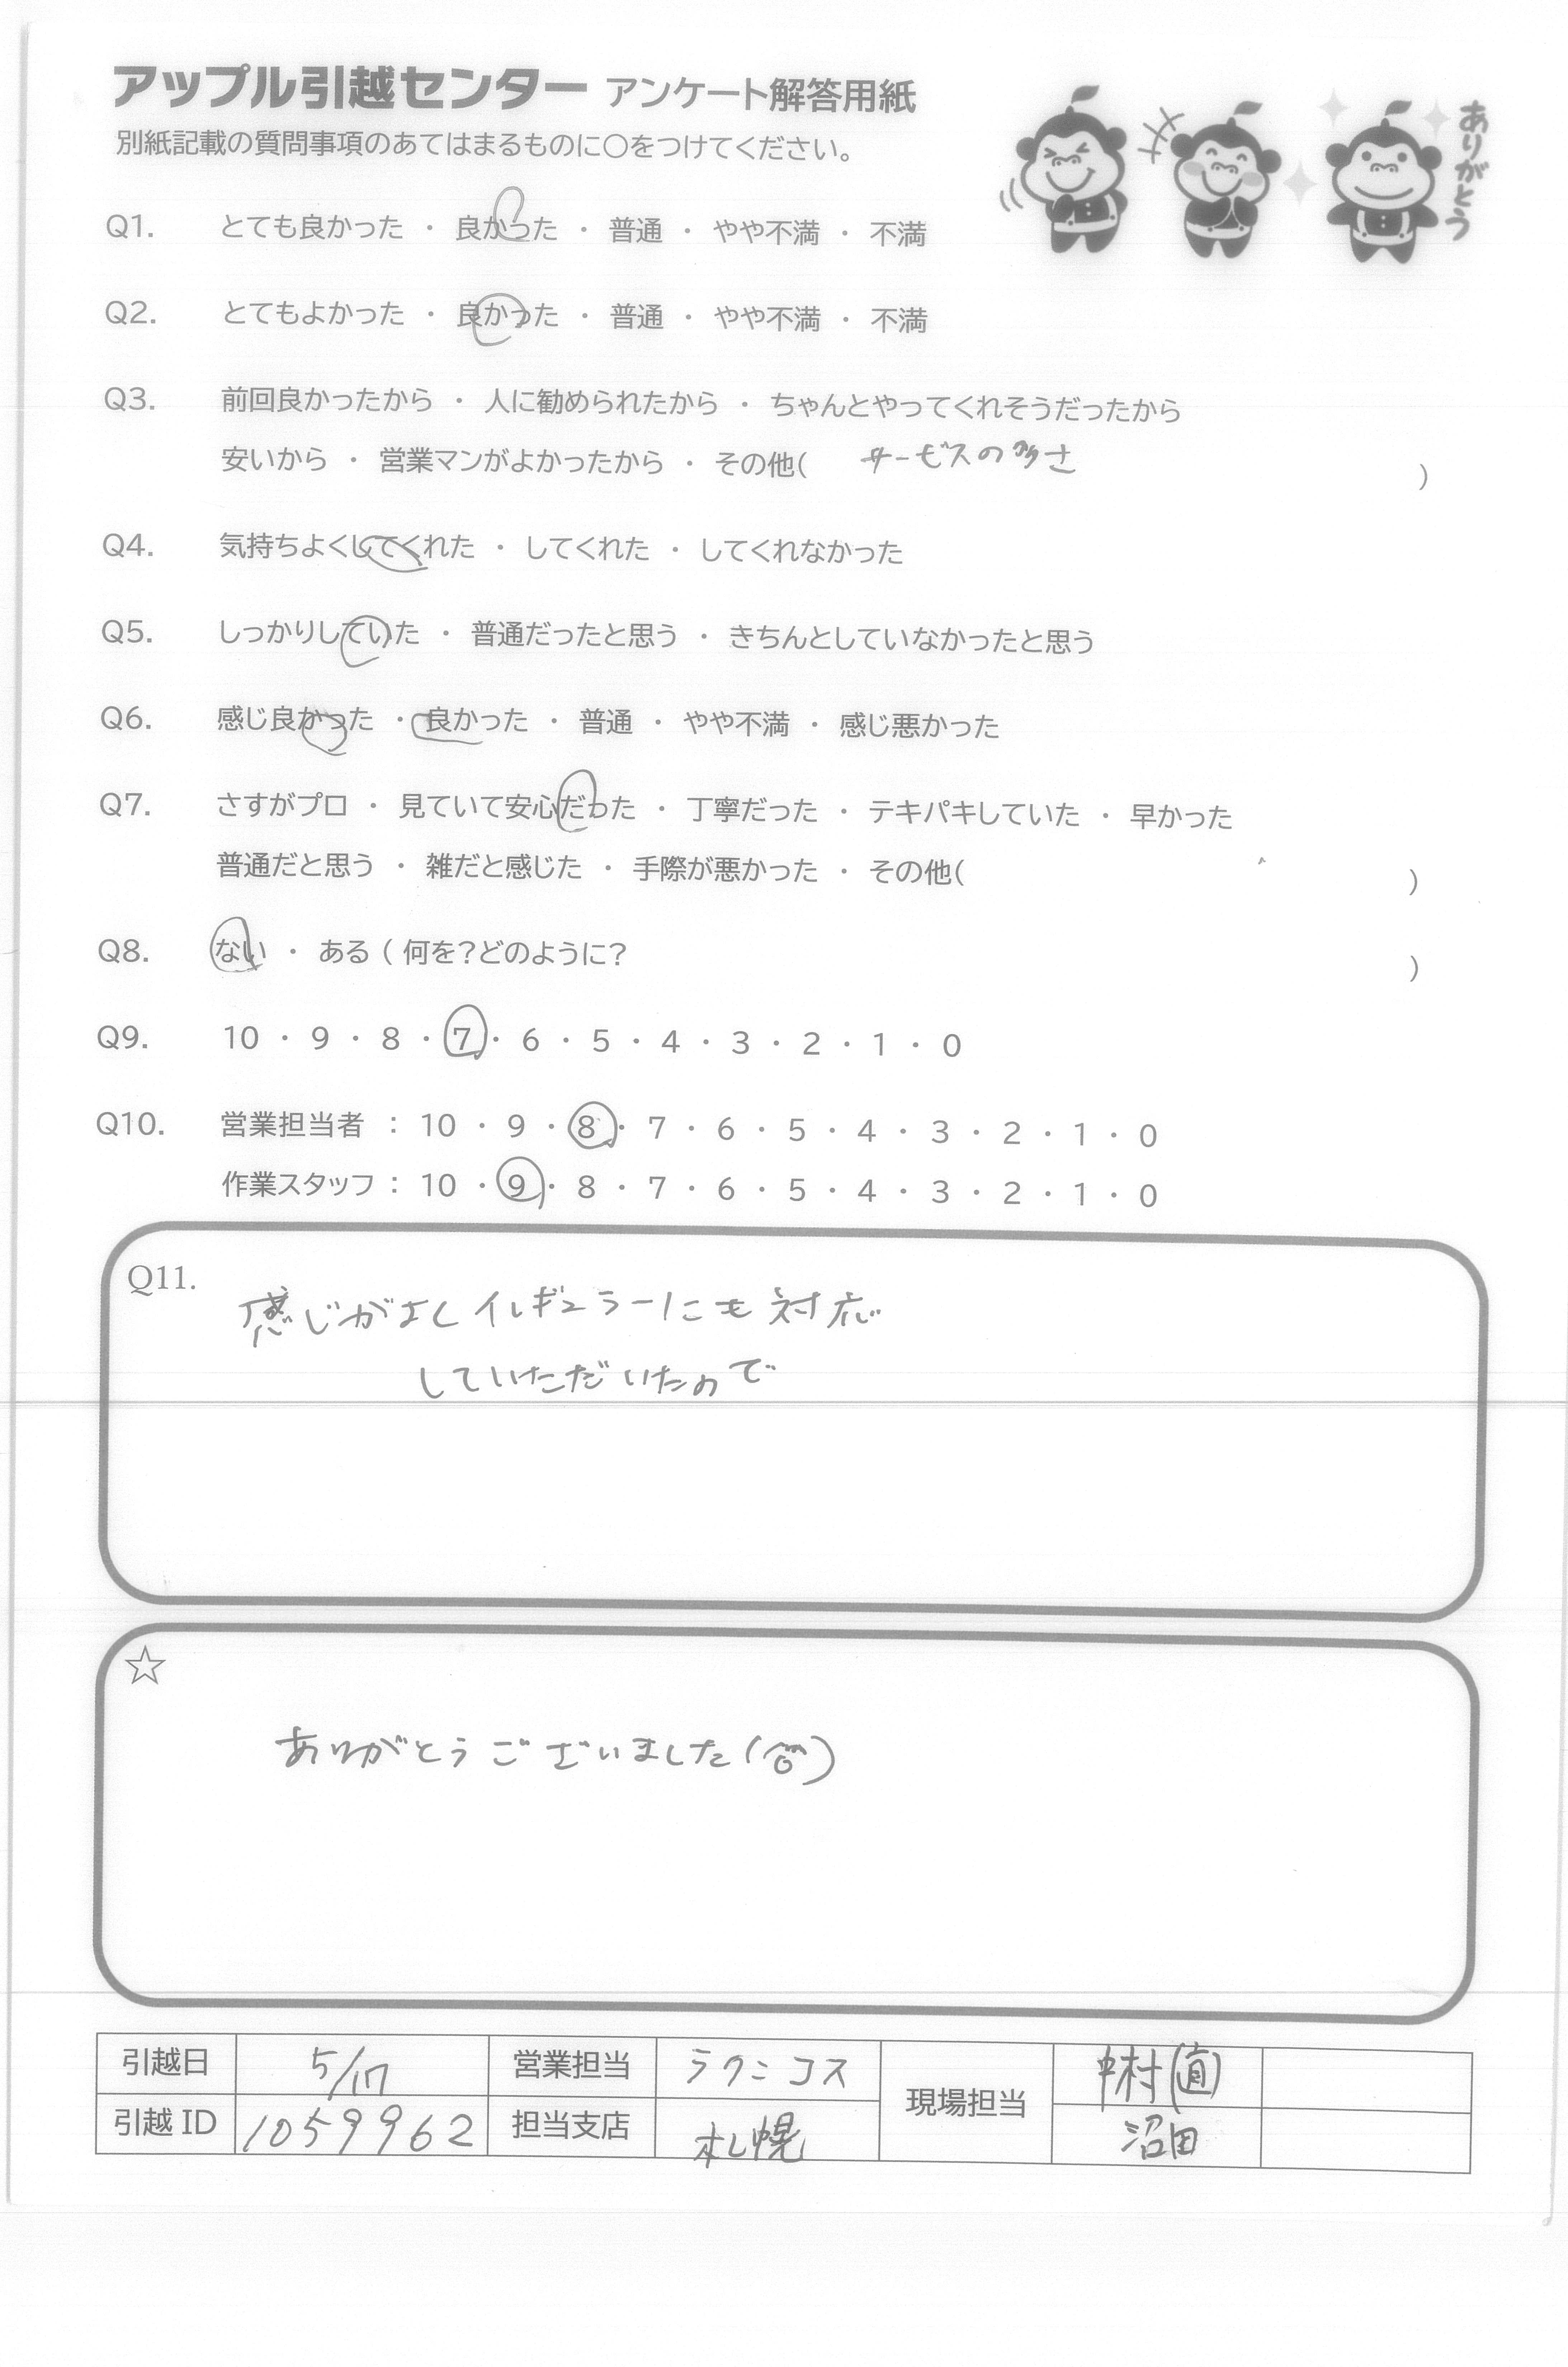 アップル引越センター アンケート解答用紙
別紙記載の質問事項のあてはまるものに〇をつけてください。
ありがとう
Q1. とても良かった ・ 良かった ・ 普通 ・ やや不満 ・ 不満
Q2. とてもよかった ・ 良かった ・ 普通 ・ やや不満 ・ 不満
Q3. 前回良かったから ・ 人に勧められたから ・ ちゃんとやってくれそうだったから
安いから ・ 営業マンがよかったから ・ その他( サービスの多さ )
Q4. 気持ちよくしてくれた ・ してくれた ・ してくれなかった
Q5. しっかりしていた ・ 普通だったと思う ・ きちんとしていなかったと思う
Q6. 感じ良かった ・ 良かった ・ 普通 ・ やや不満 ・ 感じ悪かった
Q7. さすがプロ ・ 見ていて安心だった ・ 丁寧だった ・ テキパキしていた ・ 早かった
普通だと思う ・ 雑だと感じた ・ 手際が悪かった ・ その他( )
Q8. ない ・ ある ( 何を?どのように? )
Q9. 10 ・ 9 ・ 8 ・ 7 ・ 6 ・ 5 ・ 4 ・ 3 ・ 2 ・ 1 ・ 0
Q10. 営業担当者 : 10 ・ 9 ・ 8 ・ 7 ・ 6 ・ 5 ・ 4 ・ 3 ・ 2 ・ 1 ・ 0
作業スタッフ : 10 ・ 9 ・ 8 ・ 7 ・ 6 ・ 5 ・ 4 ・ 3 ・ 2 ・ 1 ・ 0
Q11. 感じがよくイレギュラーにも対応
していただいたので
☆
ありがとうございました
引越日 5/17 営業担当 ラクニコス 現場担当 中村(直)
引越 ID 1059962 担当支店 札幌 沼田